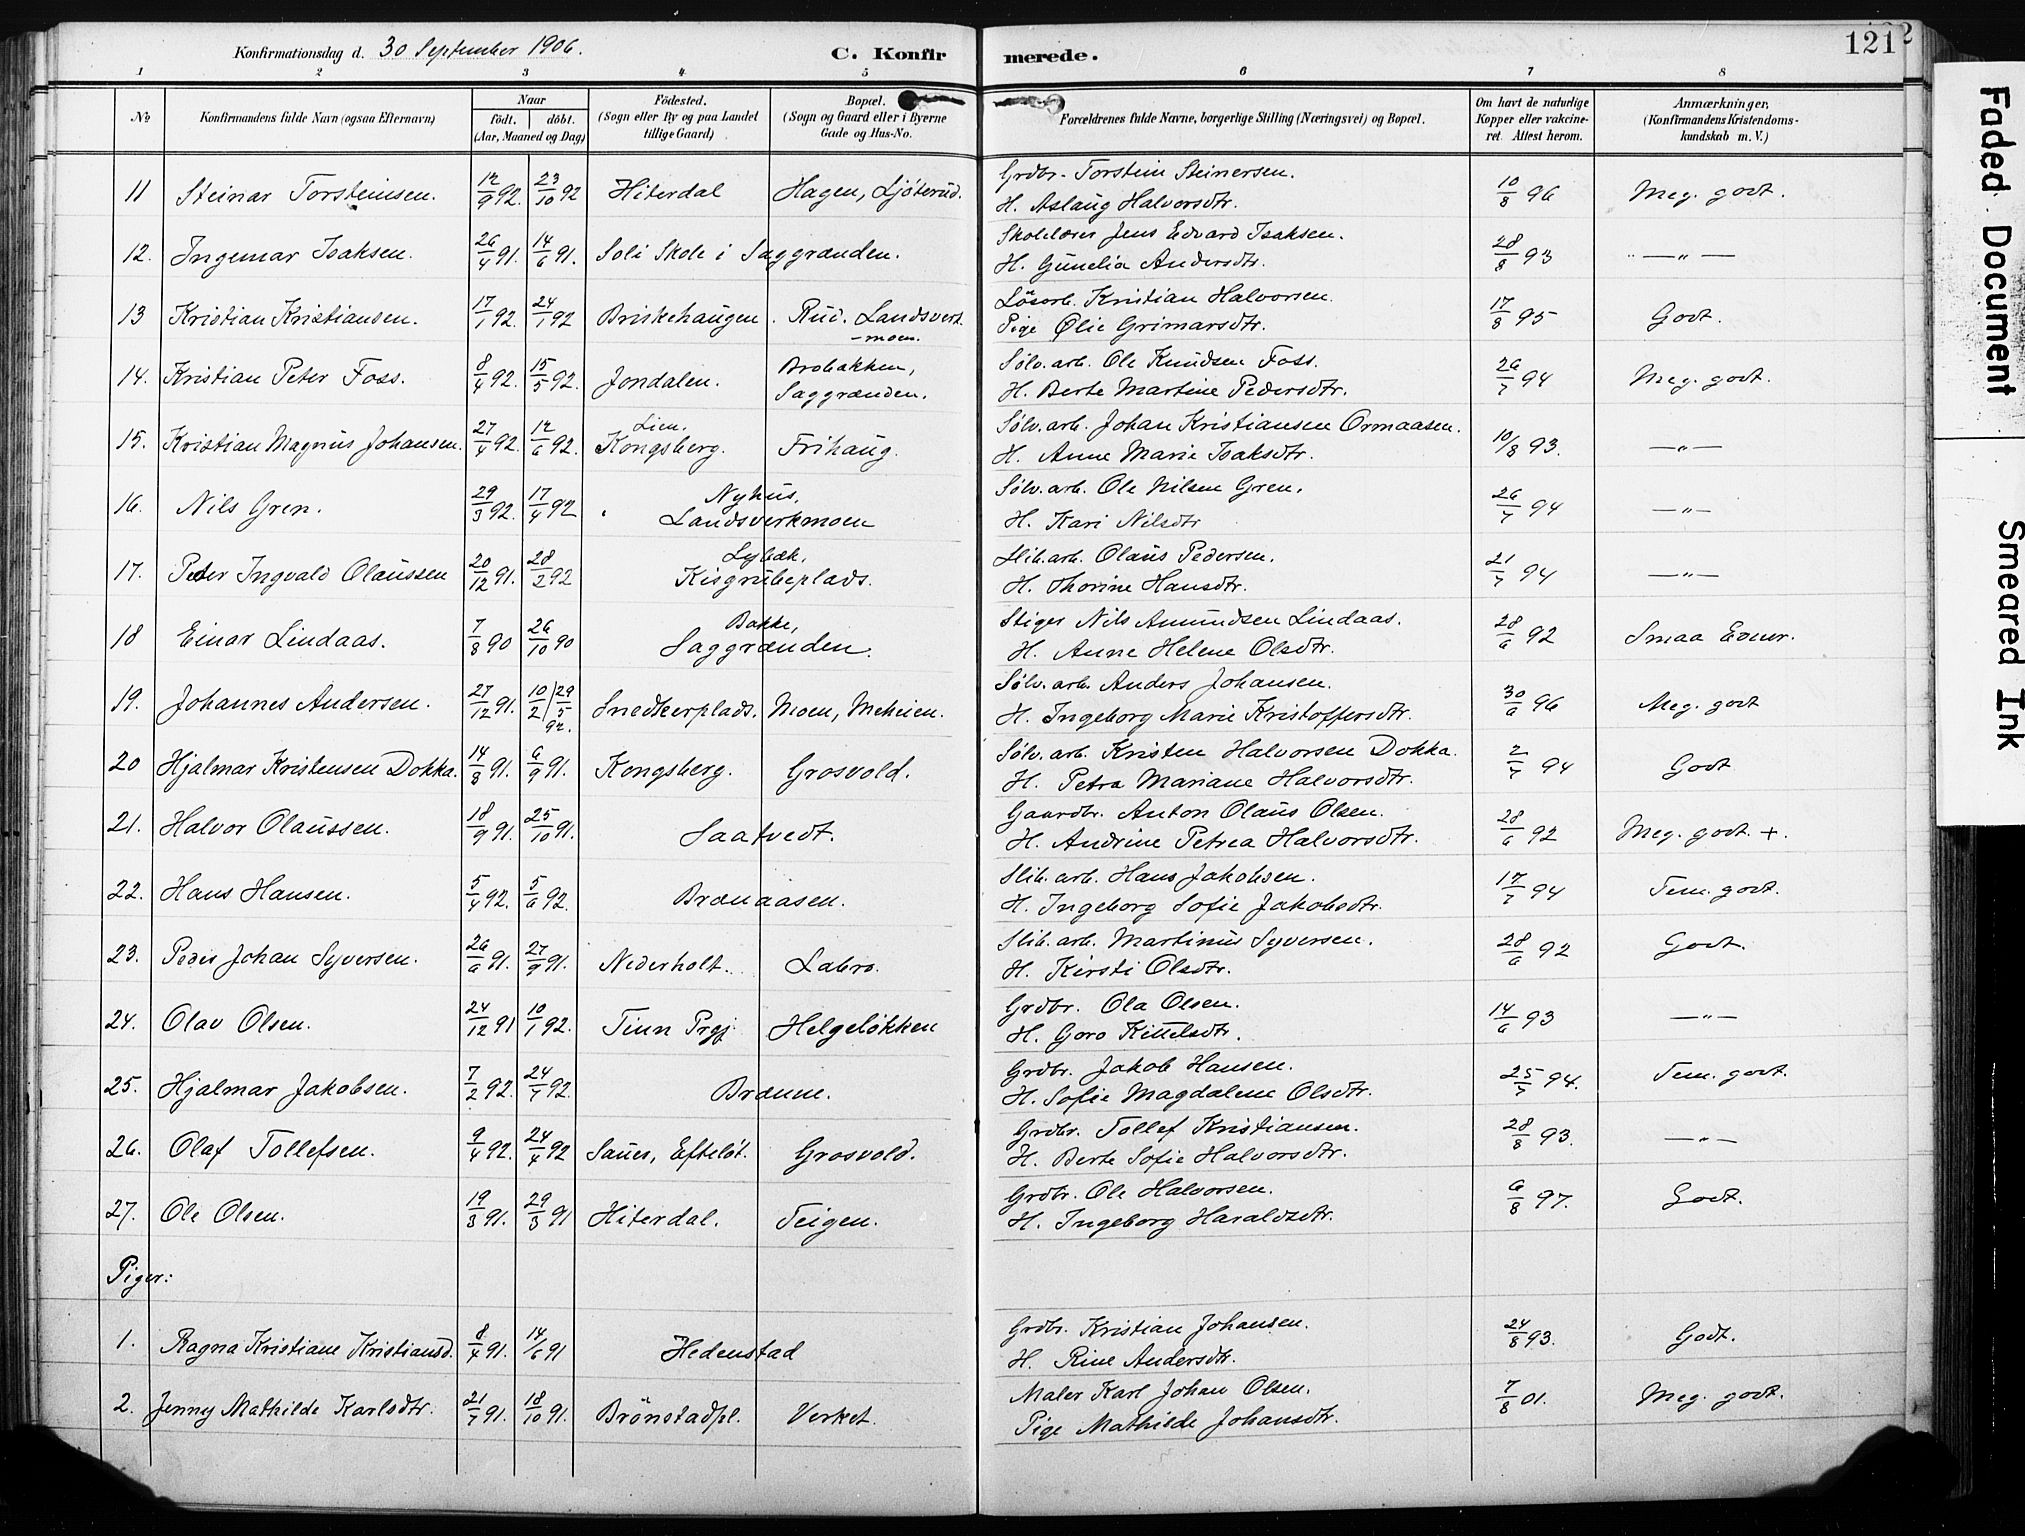 Konfirmationsdag d. 30 September 1906. C. Konfirmerede. 121
1 2 3 4 5 6 7 8
No Konfirmandens fulde Navn (ogsaa Efternavn) Naar födt. döbt. (Aar, Maaned og Dag) Födested. (Sogn eller By og paa Landet tillige Gaard) Bopæl. (Sogn og Gaard eller i Byerne Gade og Hus-No. Forældrenes fulde Navne, borgerlige Stilling (Næringsvei) og Bopæl. Om havt de naturlige Kopper eller vakcineret. Attest herom. Anmærkninger, (Konfirmandens Kristendomskundskab m. V.)
11 Steinar Torsteinsen. 12/9 92. 23/10 92 Hiterdal Hagen, Ljöterud. Grdbr. Torstein Steinersen. H. Aslaug Halvorsdtr. 10/8 96 Meg. godt.
12. Ingemar Isaksen. 26/4 91. 14/6 91. Soli Skole i Saggrænden. Skolelærer Jens Edvard Isaksen. H. Gunelia Andersdtr. 28/8 93 — " —
13 Kristian Kristiansen. 17/1 92. 24/1 92 Briskehaugen. Rud. Landsverk-moen. Lösarb. Kristian Halvorsen. Pige Ølie Grimarsdtr. 17/8 95 Godt.
14. Kristian Peter Foss. 8/4 92. 15/5 92. Jondalen. Brobakken, Saggrænden. Sølv.arb. Ole Knudsen Foss. H. Berte Martine Pedersdtr. 26/7 94 Meg. godt.
15. Kristian Magnus Johansen. 27/4 92. 12/6 92. Lien. Kongsberg. Frihaug. Sølv.arb. Johan Kristiansen Ormaasen. H. Anne Marie Isaksdtr. 10/8 93. — " —
16. Nils Gren. 29/3 92. 17/4 92 Nyhus, Landsverkmoen Sølv.arb. Ole Nilsen Gren. H. Kari Nilsdtr 26/7 94 — " —
17. Peter Ingvald Olaussen 20/12 91. 28/2 92 Lybæk, Kisgrubeplads. Slib.arb. Olaus Pedersen. H. Thorine Hansdtr. 21/7 94 — " —
18 Einar Lindaas. 7/8 90 26/10 90 Bakke, Saggrænden. Stiger Nils Amundsen Lindaas. H. Anne Helene Olsdtr. 28/6 92 Smaa Evner.
19. Johannes Andersen. 27/12 91. 10/2 / 29/5 92. Snedkerplads. Moen, Meheien. Sølv.arb. Anders Johansen. H. Ingeborg Marie Kristoffersdtr. 30/6 96 Meg. godt
20 Hjalmar Kristensen Dokka. 14/8 91. 6/9 91. Kongsberg. Grosvold. Sølv.arb. Kristen Halvorsen Dokka. H. Petra Mariane Halvorsdtr. 2/7 94 Godt
21. Halvor Olaussen. 18/9 91. 25/10 91. Saatvedt. Gaardbr. Anton Olaus Olsen. H. Andrine Petrea Halvorsdtr. 28/6 92 Meg. godt. +.
22. Hans Hansen. 5/4 92. 5/6 92. Brænaasen. Slib. arb. Hans Jakobsen. H. Ingeborg Sofie Jakobsdtr. 17/7 94 Tem. godt.
23. Peder Johan Syversen. 26/6 91. 27/9 91. Nederholt. Labro. Slib. arb. Martinus Syversen. H. Kirsti Olsdtr. 28/6 92 Godt.
24. Olav Olsen. 24/12 91 10/1 92. Tinn Prgj. Helgeløkken Grdbr. Ola Olsen. H. Goro Kittelsdtr. 14/6 93 — " —
25. Hjalmar Jakobsen. 7/2 92. 24/7 92. Brænne. Grdbr. Jakob Hansen. H. Sofie Magdalene Olsdtr. 25/7 94. Tem. godt.
26. Olaf Tollefsen. 9/4 92. 24/4 92 Sauer, Efteløt. Grosvold. Grdbr. Tollef Kristiansen. H. Berte Sofie Halvorsdtr. 28/8 93. — " —
27. Ole Olsen. 19/3 91. 29/3 91 Hiterdal. Teigen. Grdbr. Ole Halvorsen. H. Ingeborg Haraldsdtr. 6/8 97. Godt.
Piger:
1. Ragna Kristiane Kristiansd. 8/4 91. 14/6 91 Hedenstad Grdbr. Kristian Johansen. H. Rine Andersdtr. 24/8 93. Godt.
2. Jenny Mathilde Karlsdtr. 21/7 91. 18/10 91. Brönstadpl. Verket. Maler Karl Johan Olsen. Pige Mathilde Johansdtr. 7/8 01. Meg. godt.
Faded Document
Smeared Ink